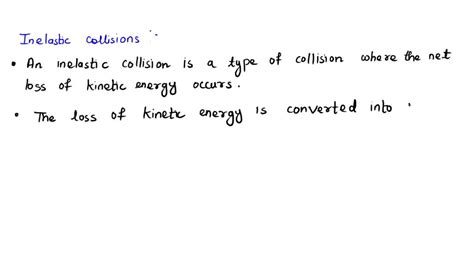 Inelastic collisions :
• An inelastic collision is a type of collision where the net
loss of kinetic energy occurs.
• The loss of kinetic energy is converted into